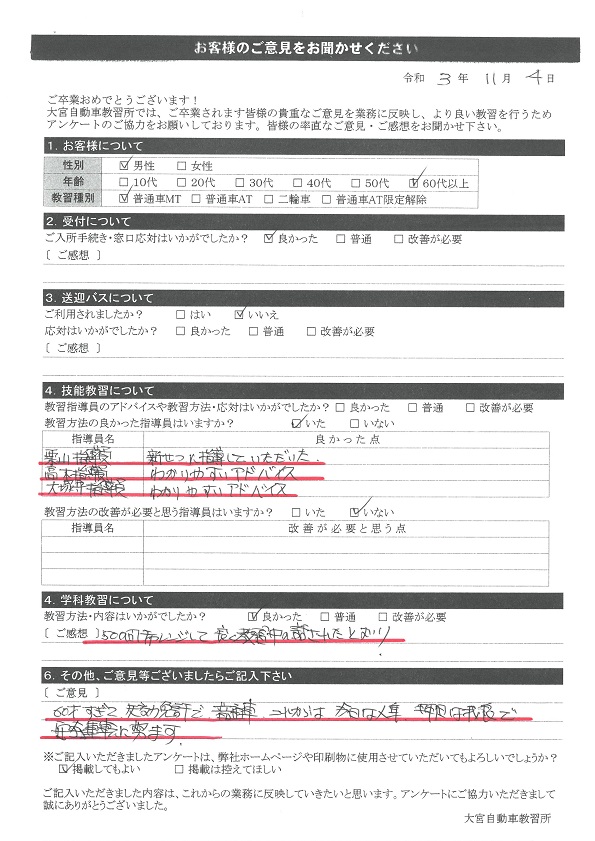 お客様のご意見をお聞かせください
令和 3 年 11 月 4 日
ご卒業おめでとうございます！
大宮自動車教習所では、ご卒業されます皆様の貴重なご意見を業務に反映し、より良い教習を行うため
アンケートのご協力をお願いしております。皆様の率直なご意見・ご感想をお聞かせ下さい。
1．お客様について
性別 ☑男性 □女性
年齢 □10代 □20代 □30代 □40代 □50代 ☑60代以上
教習種別 ☑普通車MT □普通車AT □二輪車 □普通車AT限定解除
2．受付について
ご入所手続き・窓口応対はいかがでしたか？ ☑良かった □普通 □改善が必要
〔 ご感想 〕
3．送迎バスについて
ご利用されましたか？ □はい ☑いいえ
応対はいかがでしたか？ □良かった □普通 □改善が必要
〔 ご感想 〕
4．技能教習について
教習指導員のアドバイスや教習方法・応対はいかがでしたか？ □良かった □普通 □改善が必要
教習方法の良かった指導員はいますか？ ☑いた □いない
指導員名 良かった点
栗山指導員 指導していただいた
高木指導員 わかりやすいアドバイス
大塚 指導員 わかりやすいアドバイス
教習方法の改善が必要と思う指導員はいますか？ □いた ☑いない
指導員名 改善が必要と思う点
4．学科教習について
教習方法・内容はいかがでしたか？ ☑良かった □普通 □改善が必要
〔 ご感想 〕
6．その他、ご意見等ございましたらご記入下さい
〔 ご意見 〕
60才すぎて これからは
ます
※ご記入いただきましたアンケートは、弊社ホームページや印刷物に使用させていただいてもよろしいでしょうか？
☑掲載してもよい □掲載は控えてほしい
ご記入いただきました内容は、これからの業務に反映していきたいと思います。アンケートにご協力いただきまして
誠にありがとうございました。
大宮自動車教習所